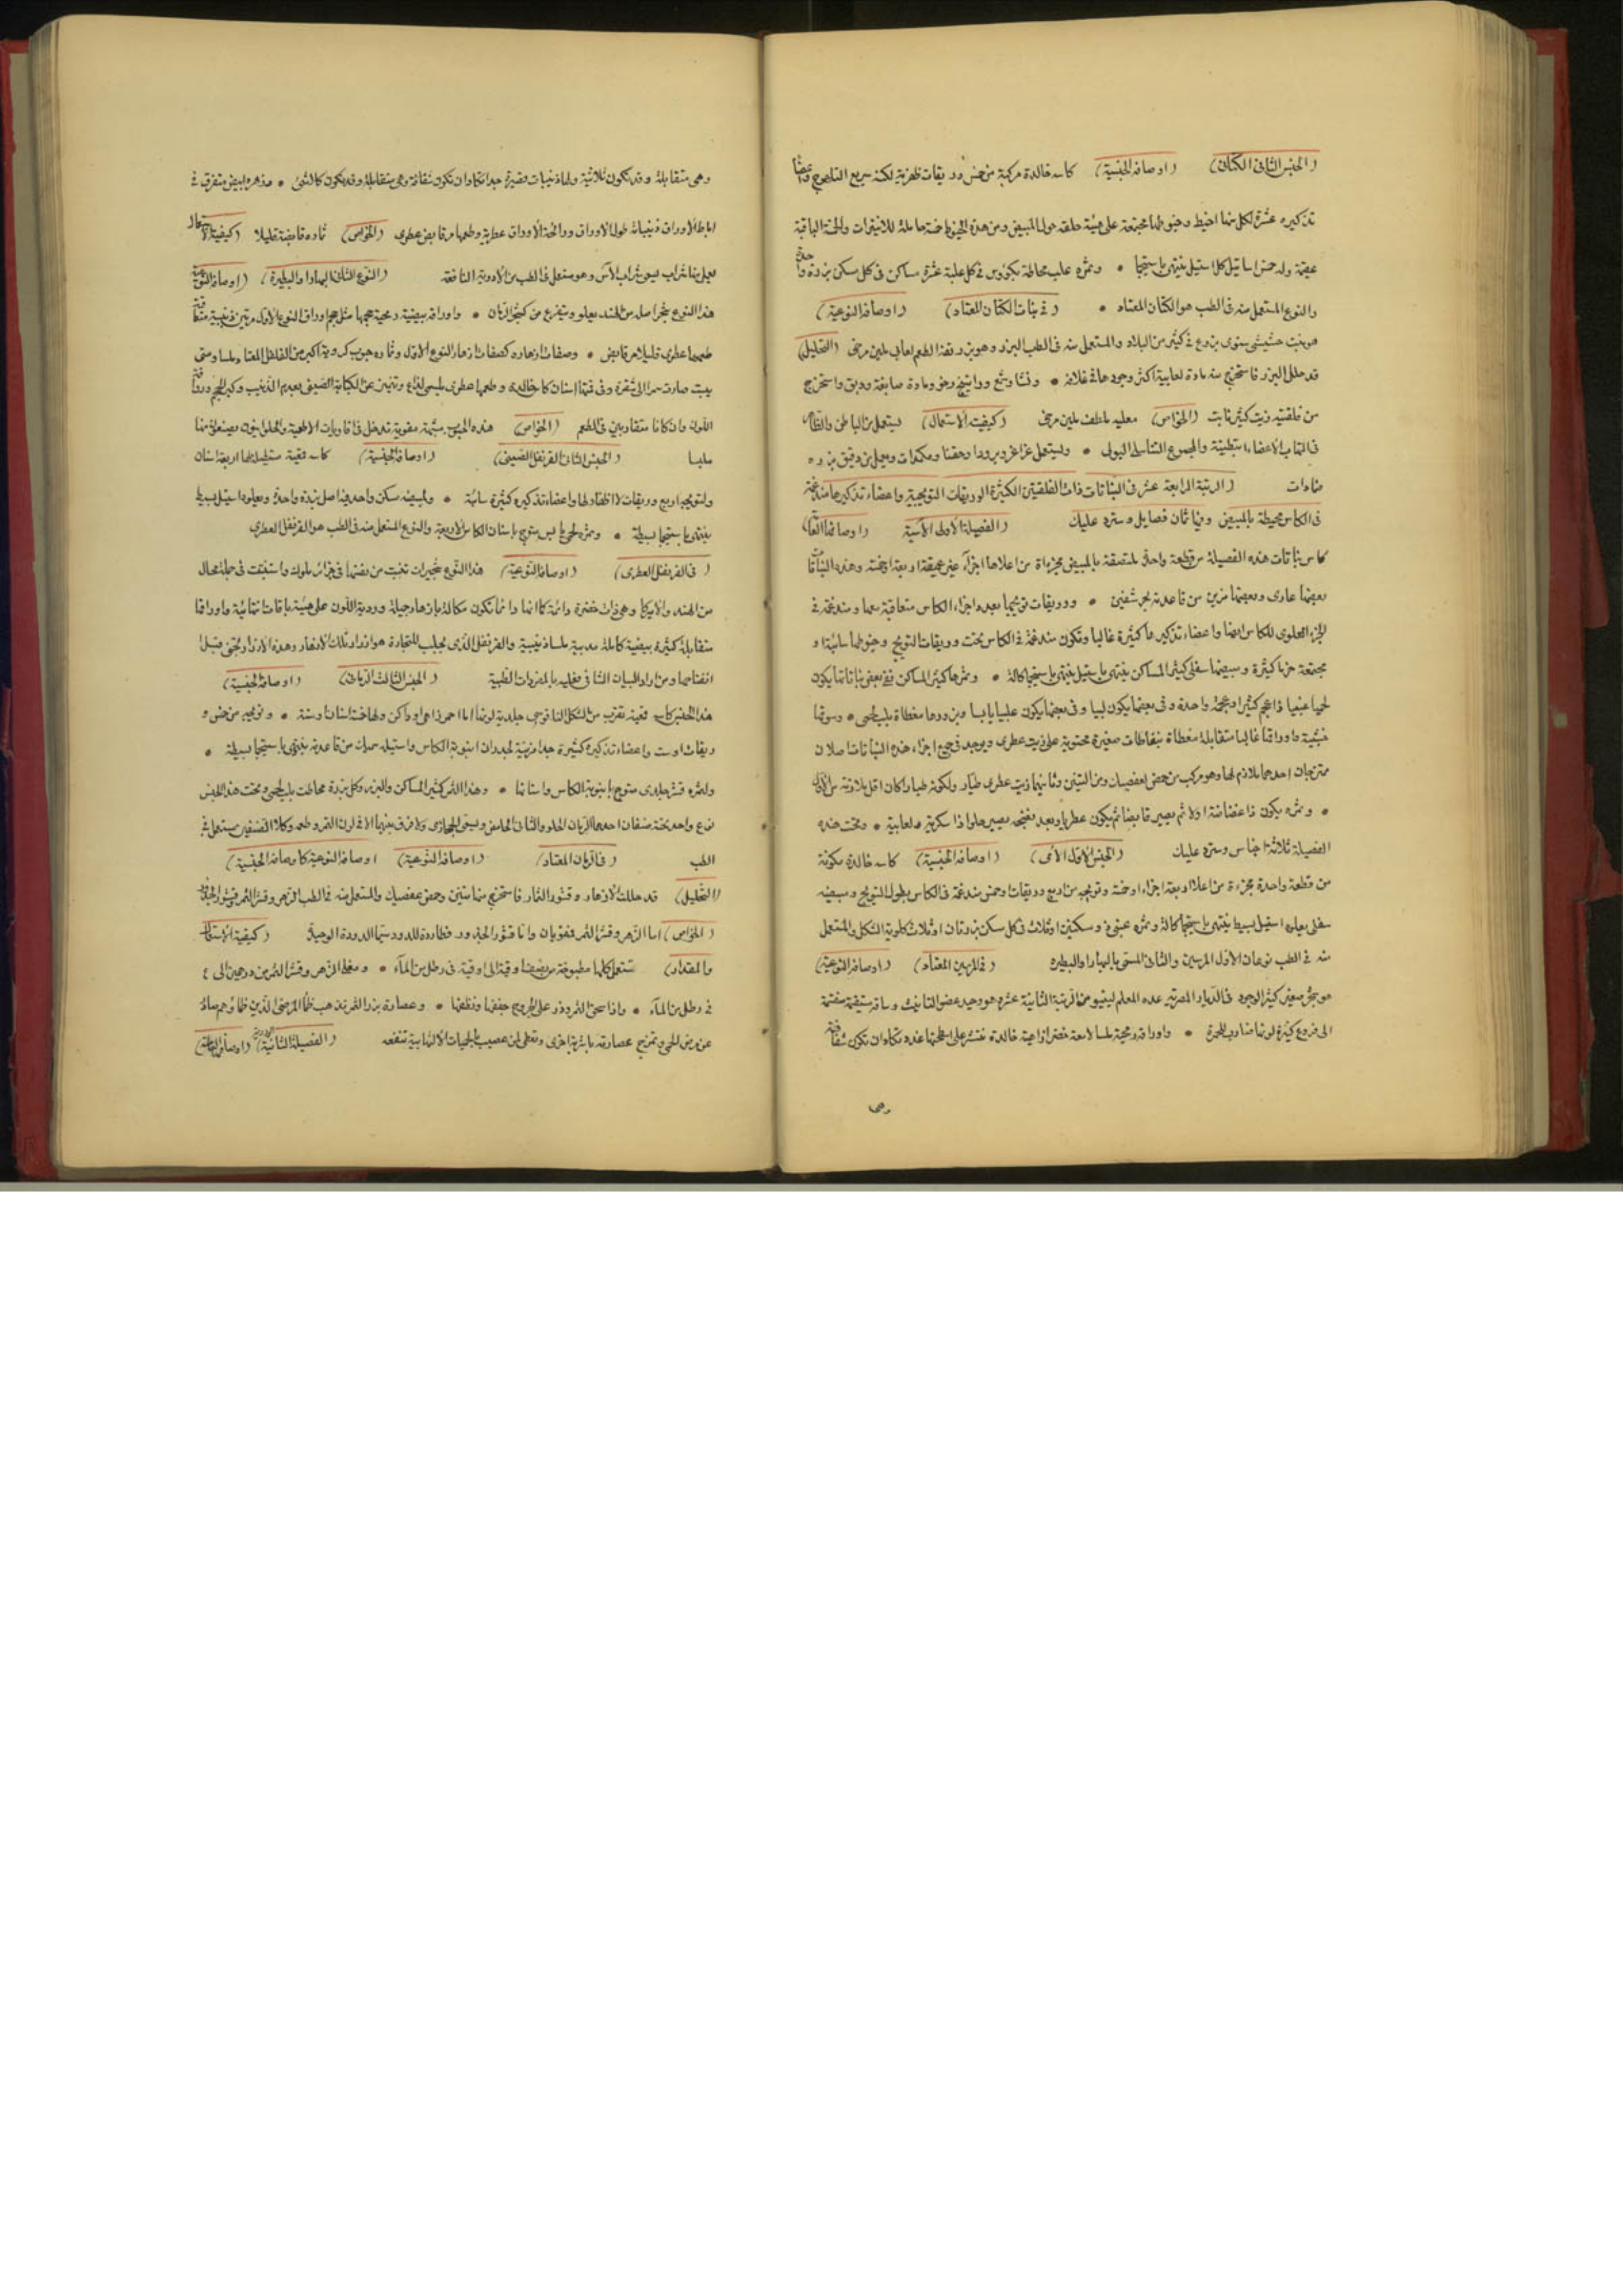 (الجنس الثانى الكتانى) (اوصافه الجنسية) كاسه خالدة مركبة من خمس وريقات ظهرية لكنه سريع التلصوج واعضا
تذكيره عشرة لكل منها خيط وخيوطها مجتمعة على هيئة حلقة حول المبيض ومن هذه الخيوط خمسة حاملة للانتيرات والخمسة الباقية
عقيمة وله خمس اساتيل كل استيل ينتهى باستيجما • وثمره علب محاطة بكؤوس فى كل علبة عشرة مساكن فى كل مسكن بزرة واحدة
والنوع المستعمل منه فى الطب هو الكتان المعتاد • (فى نبات الكتان المعتاد) (اوصافه النوعية)
هو نبت حشيشى سنوى يزرع فى كثير من البلاد والمستعمل منه فى الطب البزر وهو بزر تفه الطعم لعابى ملين مرخى (التحليل)
قد حلل البزر فاستخرج منه مادة لعابية اكثر وجودها فى غلافه • ونشا وشمع وراتينج رخو ومادة صابغة ودبق واستخرج
من فلقتيه زيت كثير ثابت (الخواص) معليه ملطف ملين مرخى (كيفية الاستعمال) يستعمل من الباطن والظاهر
فى التهاب الاعضاء البطنية والمجموع التناسلى البولى • ويستعمل غراغر وبرودا وحقنا ومكمدات ويعمل من دقيق بزره
ضمادات (الرتبة الرابعة عشر فى النباتات ذات الفلقتين الكثيرة الوريقات التويجية واعضاء تذكيرها مندغمة
فى الكاس محيطة بالمبيض وفيها ثمان فصايل وسترد عليك (الفصيلة الاولى الآسية) (اوصافها العامة)
كاس نباتات هذه الفصيلة من قطعة واحدة ملتصقة بالمبيض مجزءة من اعلاها اجزآء غير عميقة اربعة او خمسة وهذه النباتات
بعضها عارى وبعضها مزين من قاعدته بحرشفتين • ووريقات تويجها بعدد اجزاء الكاس متعاقبة معها ومندغمة فى
الجزء العلوى للكاس ايضا واعضاء تذكيرها كثيرة غالبا وتكون مندغمة فى الكاس تحت وريقات التويج وخيوطها سائبة او
مجتمعة حزما كثيرة ومبيضها سفلى كثير المساكن ينتهى باستيل ينتهى باستيجما كالة • وثمرها كثير المساكن ففى بعض نباتاتها يكون
لحميا عنبيا ذا عجم كثير او عجمة واحدة وفى بعضها يكون لبيا وفى بعضها يكون علبيا يابسا وبزورها مغطاة بلب لحمى • وسوقها
خشبية واوراقها غالبا متقابلة مغطاة بنفاطات صغيرة محتوية على زيت عطرى ويوجد فى جميع اجزاء هذه النباتات اصلان
ممتزجان احدهما ملازم لها وهو مركب من حمض العفصيك ومن التنين وثانيهما زيت عطرى طيار ولكونه طيارا كان اقل ملازمة من الاول
• وثمره يكون ذا غضاضة اولا ثم يصير قابضا ثم يكون عطريا وبعد نضجه يصير حلوا ذا سكرية ولعابية • وتحت هذه
الفصيلة ثلاثة اجناس وسترد عليك (الجنس الاول الآسى) (اوصافه الجنسية) كاسه خالدة مكونة
من قطعة واحدة مجزءة من اعلاها اربعة اجزاء او خمسة وتويجه من اربع وريقات او خمس مندغمة فى الكاس بطول التويج ومبيضه
سفلى يعلوه استيل بسيط ينتهى باستيجما كالة وثمره عنبى ذو مسكنين او ثلاث فى كل مسكن بزرتان او ثلاث كلوية الشكل والمستعمل
منه فى الطب نوعان الاول المرسين والثانى المسمى بالبهار او البطيره (فى المرسين المعتاد) (اوصافه النوعية)
هو شجر صغير كثير الوجود فى الديار المصرية عده المعلم لينيو من الرتبة الثانية عشره هو وحيد عضو التانيث وساقه مستقيمة منقسمة
الى فروع كثيرة لونها ضارب للحمرة • واوراقه رمحية ملسا لامعة خضرا زاهية خالدة منتشر على سطحها غدد تكاد ان تكون شفافة
وهى
وهى متقابلة وقد تكون ثلاثية ولها ذنيبات قصيرة جدا تكاد ان تكون شفافة وهى متقابلة وقد تكون كالشئ • وزهره ابيض متفرق فى
اباط الاوراق ذنيباته طول الاوراق ورائحة الاوراق عطرية وطعمها مر قابض عطرى (الخواص) ثماره قابضة قليلا (كيفية الاستعمال)
يعمل منها شراب يسمى شراب الآس وهو مستعمل فى الطب من الادوية النافعة (النوع الثانى البهار او البطيرة) (اوصافه النوعية)
هذا النوع شجر اصله من الهند يعلو ويتفرع من كشجر الرمان • واوراقه بيضية رمحية حجمها مثل حجم اوراق النوع الاول مرتين ذنيبية متقابلة
طعمها عطرى قليلا مر قابض • وصفات ازهاره كصفات ازهار النوع الاول وثماره حبوب كروية اكبر من الفلفل المعتاد ملسا ومتى
يبست صارت سمرا الى شقرة وفى قمتها اسنان كاس خالدة وطعمها عطرى يلسى لذاع وتتميز عن الكبابة الصينى بعدم الذنيب وكبر الحجم ورقة
اللون وان كانا متقاربين فى الطعم (الخواص) هذه الحبوب منبهة مقوية تدخل فى افاويات الاطعمة والحلوانيون يصنعون منها
ملبسا (الجنس الثانى القرنفل الصينى) (اوصافه الجنسية) كاسه قمعية مستطيلة لها اربعة اسنان
ولتويجه اربع وريقات لا اظفار لها واعضاء تذكيره كثيرة سائبة • ولمبيضه مسكن واحد فيه اصل بزرة واحدة ويعلوه استيل بسيط
ينتهى باستيجما بسيطة • وثمره لحمى يابس متوج باسنان الكاس الاربعة والنوع المستعمل منه فى الطب هو القرنفل العطرى
(فى القرنفل العطرى) (اوصافه النوعية) هذا النوع شجيرات تنبت من نفسها فى جزائر ملوك واستنبتت فى جملة محال
من الهند والاميركا وهى ذات خضرة دائمة كما انها دائما تكون مكللة بازهار جميلة وردية اللون على هيئة باقات انتهائية واوراقها
متقابلة كثيرة بيضية كاملة مدببة ملسا ذنيبية والقرنفل الذى يجلب للتجارة هو ازرار تلك الازهار وهذه الازرار تجنى قبل
انفتاحها ومن اراد البيان الشافى فعليه بالمفردات الطبية (الجنس الثالث الرمانى) (اوصافه الجنسية)
هذا الجنس كاسه قمعية تقرب من الشكل الناقوسى جلدية لونها اما احمر زاهى او داكن ولها خمسة اسنان او ستة • وتويجه من خمس و
ريقات او ست واعضاء تذكيره كثيرة جدا مزينة لجدران انبوبة الكاس واستيله سميك من قاعدته ينتهى باستيجما بسيطة •
ولثمره قشر جلدى متوج بانبوبة الكاس واسنانها • وهذا الثمر كثير المساكن والبزر وكل بزرة محاطة بلب لحمى وتحت هذا الجنس
نوع واحد تحته صنفان احدهما الرمان الحلو والثانى الحامض ويسمى الحجازى ولا فرق بينهما الا فى لون الثمر وطعمه وكلا الصنفين مستعمل فى
الطب (فى الرمان المعتاد) (اوصافه النوعية) اوصافه النوعية كاوصافه الجنسية)
(التحليل) قد حللت الازهار وقشور الثمار فاستخرج منها تنين وحمض عفصيك والمستعمل منه فى الطب الزهر وقشر الثمر وقشور الجذور
(الخواص) اما الزهر وقشر الثمر فمقويان واما قشور الجذور فطاردة للدود سيما الدودة الوحيدة (كيفية الاستعمال
والمقدار) تستعمل كلها مطبوخة من نصف اوقية الى اوقية فى رطل من المآء • ومغلى الزهر وقشر الثمر من درهمين الى ٤
فى رطل من المآء • واذا سحق الثمر وذر على الجروح جففها ونظفها • وعصارة بزر الثمر تذهب ظما المرضى الذين ظماؤهم حادث
عن مرض الحمى وتمزج عصارته باشربة اخرى وتعطى لمن اصيب بالحميات الالتهابية تنفعه (الفصيلة الثانية الوردية) (اوصافها العامة)